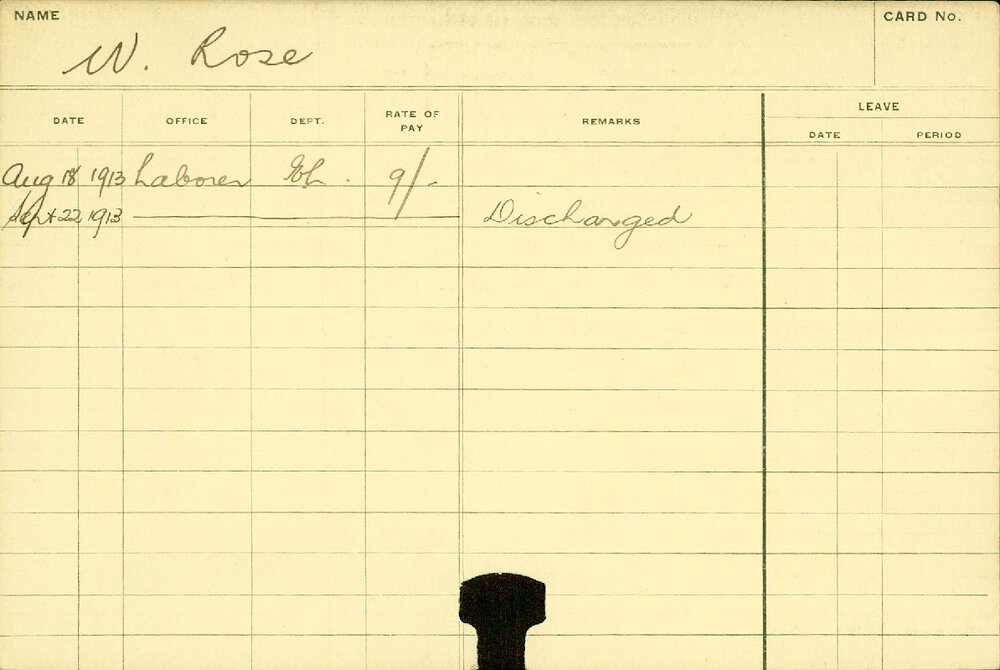 NAME
CARD No.
W. Rose
DATE OFFICE DEPT. RATE OF PAY REMARKS LEAVE
DATE PERIOD
Aug 18 1913 Laborer 9/-
Sept 22 1913 Discharged